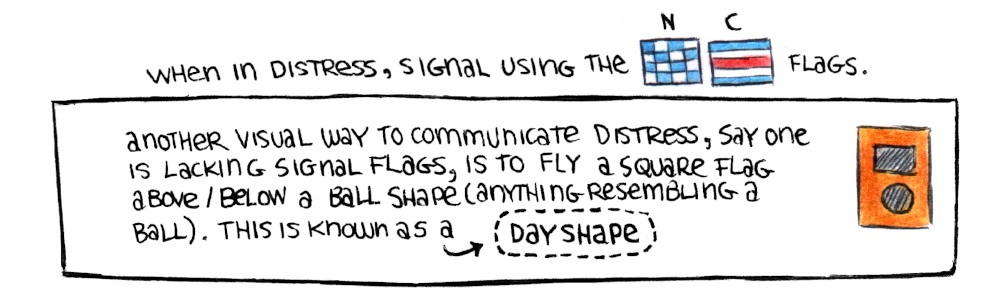 N C
WHEN IN DISTRESS, SIGNAL USING THE FLAGS.
ANOTHER VISUAL WAY TO COMMUNICATE DISTRESS, SAY ONE
IS LACKING SIGNAL FLAGS, IS TO FLY A SQUARE FLAG
ABOVE / BELOW A BALL SHAPE (ANYTHING RESEMBLING A
BALL). THIS IS KNOWN AS A DAY SHAPE